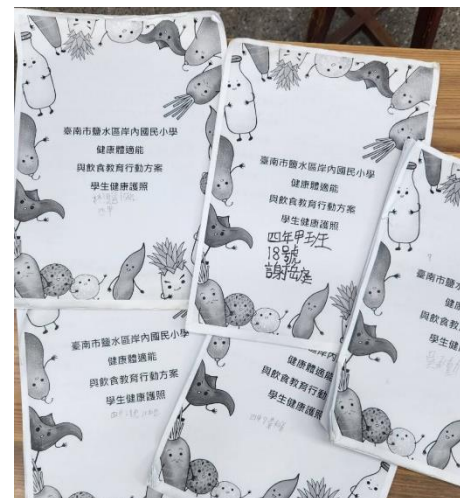 臺南市鹽水區岸內國民小學
健康體適能
與飲食教育行動方案
學生健康護照
臺南市鹽水區岸內國民小學
健康體適能
與飲食教育行動方案
學生健康護照
四年甲班
18號
臺南市鹽水
健康
與飲食教
學生健
臺南市鹽水區岸內國民小學
健康體適能
與飲食教育行動方案
學生健康護照
岸內
健康體適能
與飲食教育行動
學生健康護照